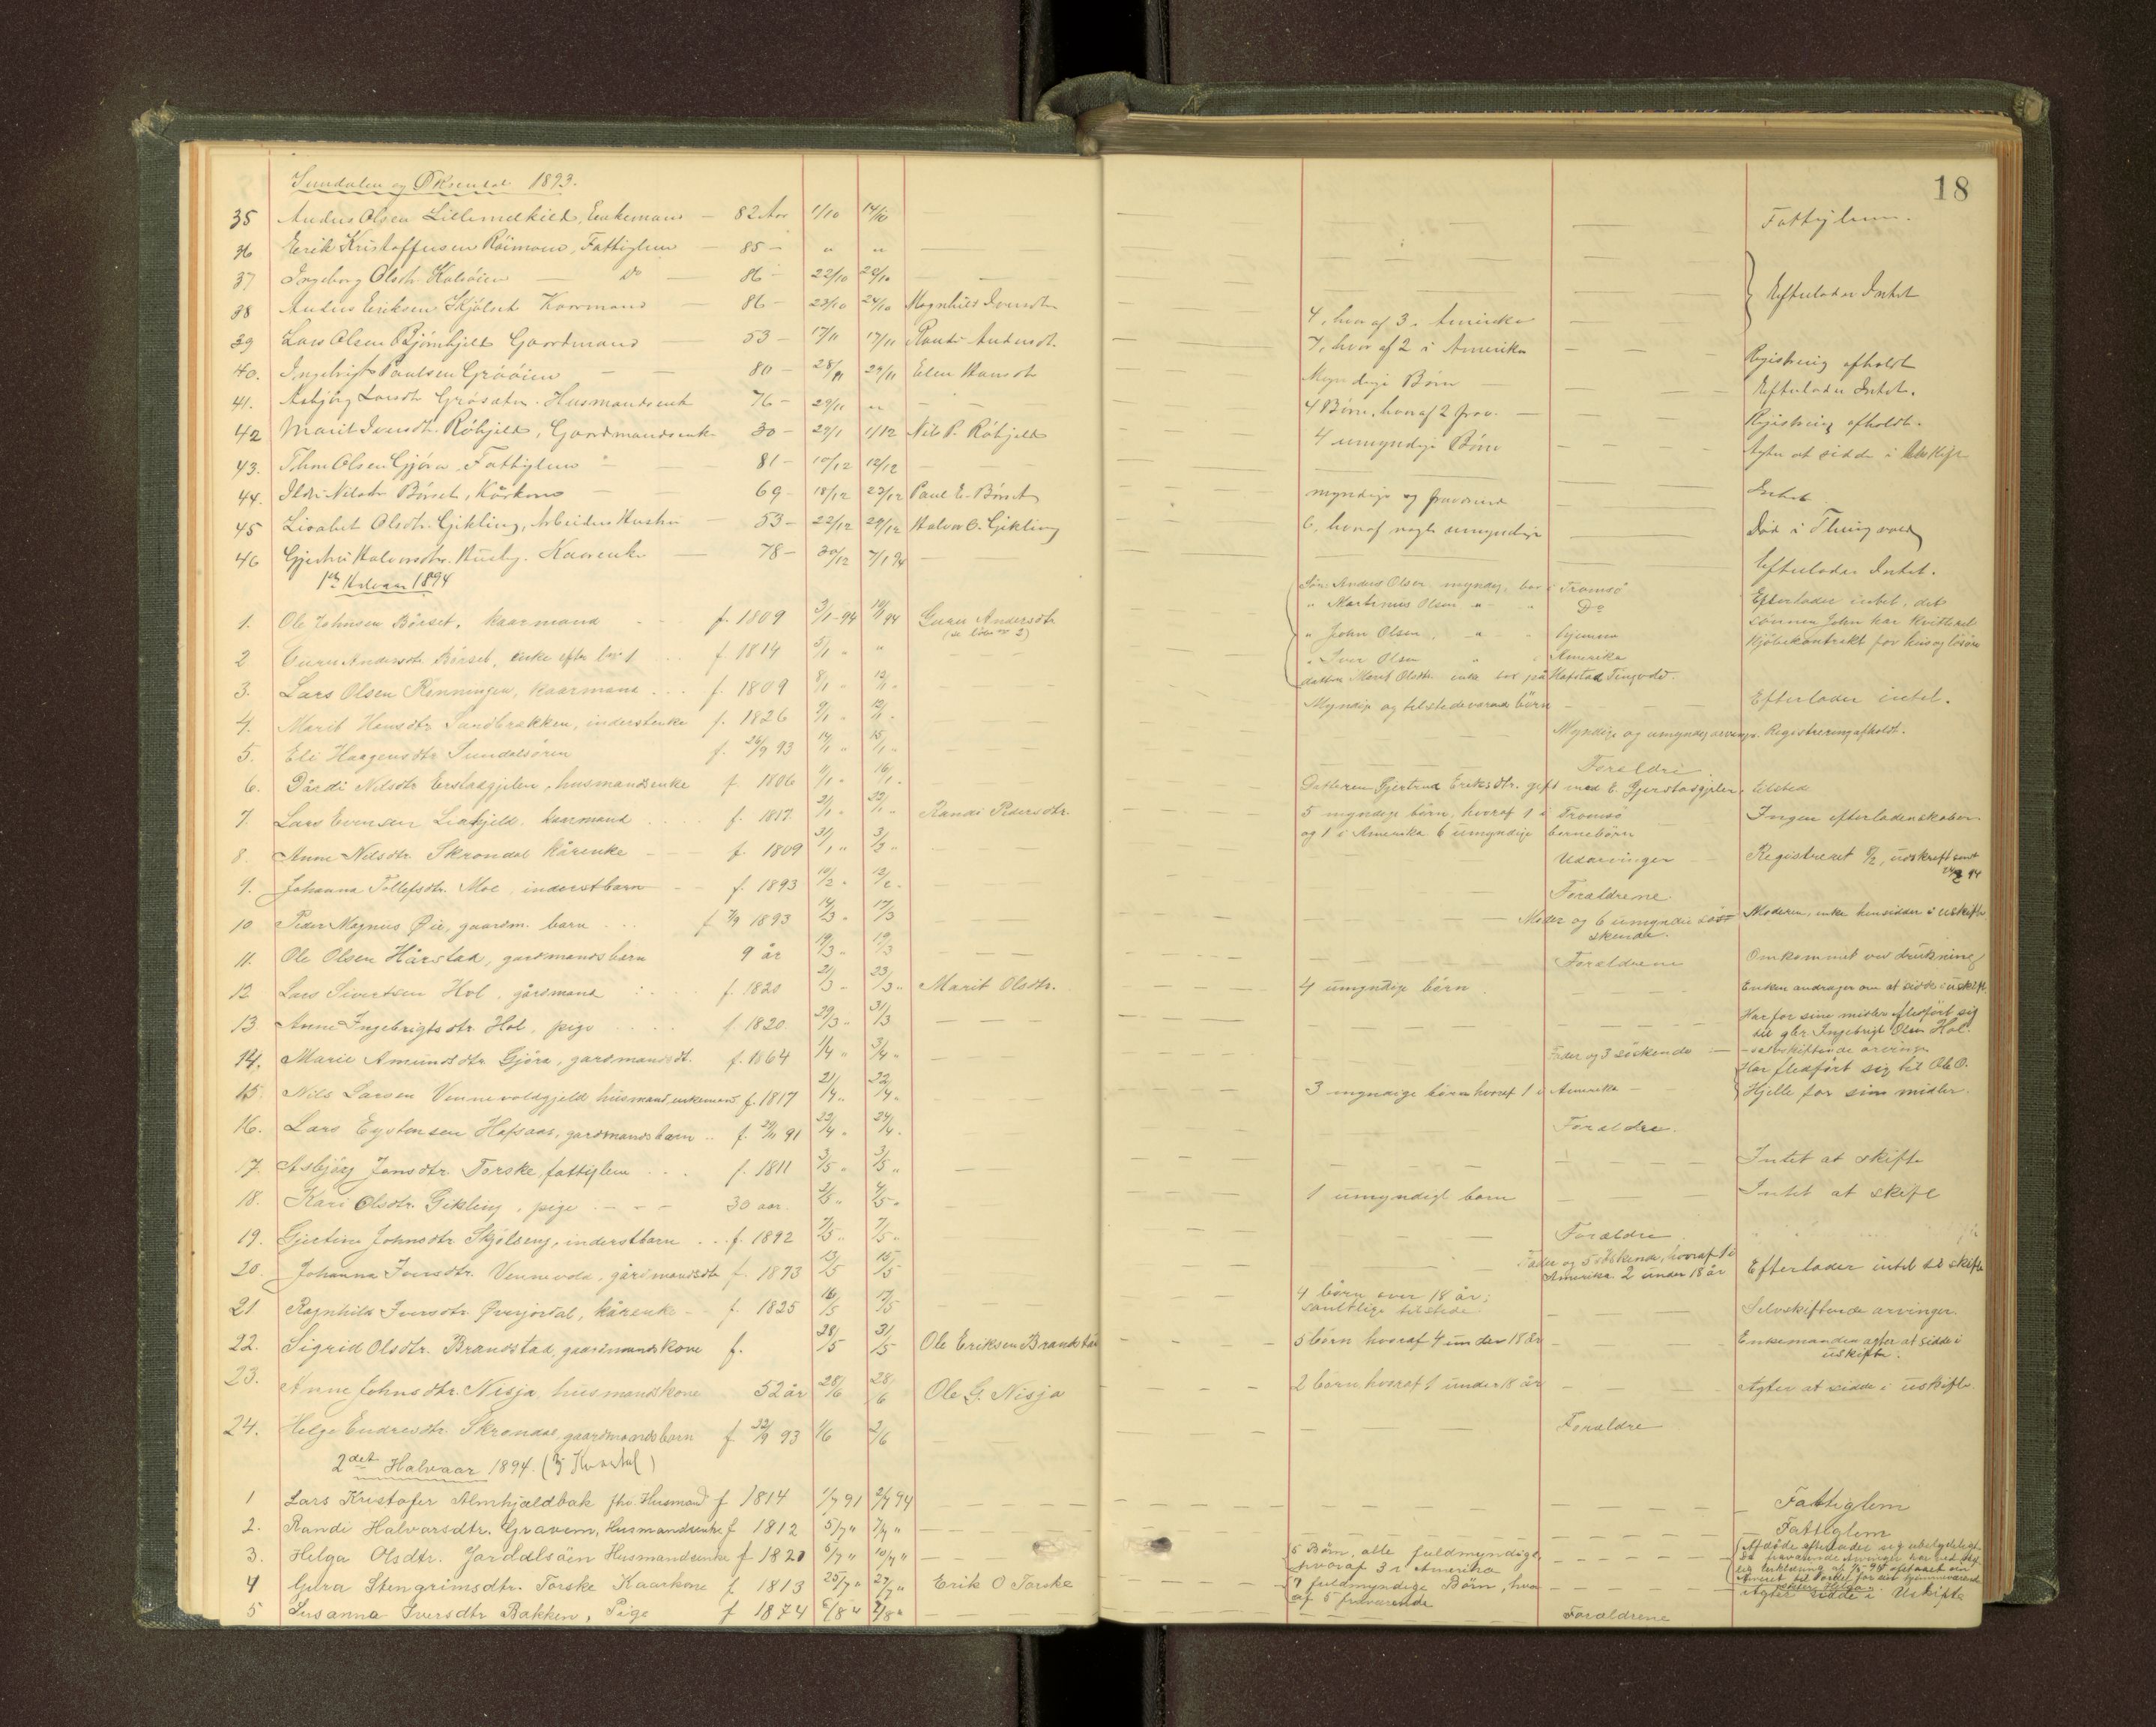 18
Sundalen og Øksendal 1893.
35 Anders Olsen Lillemelkild, Enkemand — 82 Aar 1/10 14/10 — — — Fattiglem.
36 Erik Kristoffersen Röimoen, Fattiglem — 85 — " "
37 Ingeborg Olsdtr. Kalsöien — Do — 86 — 22/10 24/10 — — Efterlader Intet
38 Anders Eriksen Skjölset Kaarmand — 86 — 23/10 24/10 Magnhild Iversdtr 4, hvoraf 3 i Amerika
39 Lars Olsen Björnhjeld Gaardmand — 53 — 17/11 17/11 Randi Andersdt. 7, hvoraf 2 i Amerika Registrering afholdt
40. Ingebrigt Paulsen Grööien — — 80 — 28/11 29/11 Elen Hansdtr Myndige Børn Efterlader Intet.
41. Asbjörg Larsdtr Grøsæter. Husmandsenk 76 — 29/11 " — 4 Børn, hvoraf 2 frav. Registrering afholdt.
42 Marit Iversdtr. Röhjeld, Gaardmandsenk 30 — 29/1 1/12 Nils P. Röhjeld 4 umyndige Børn Agter at sidde i Uskifte
43. Thore Olsen Gjøra, Fattiglem — 81 — 10/12 12/12
44. Ildri Nilsdtr Børset, Kårkone — 69 — 18/12 23/12 Paul E. Børset myndige og fraværende Intet
45 Lisabet Olsdtr. Gikling, Arbeiders Hustru 53 — 22/12 29/12 Halvor O. Gikling 6, hvoraf nogle umyndige Død i Thingvold
46 Gjertru Halvorsdtr. Husby. Kaarenke — 78 — 30/12 7/1 94 Efterlader Intet.
1ste Halvaar 1894
1. Ole Johnsen Börset, kaarmand f. 1809 3/1-94 12/1 94 Guru Andersdtr Søn: Anders Olsen, myndig, bor i Tromsö Efterlader intet, det
(se löbe nr 2) " Martinus Olsen " " Do sønnen John har kvitteret
2 Guru Andersdtr. Börset, enke efter lbr 1 f. 1814 5/1 " " John Olsen " hjemme kjöbekontrakt for hus og lösöre
" Iver Olsen " " Amerika
datter Marit Olsdtr. enke bor på Hafstad Tingvold.
3. Lars Olsen Renningen, kaarmand . . . f. 1809 8/1 " 12/1 " Myndige og tilstedeværende børn Efterlader intet.
4. Marit Hansdtr Sandbrækken, inderstenke f. 1826 9/1 " 12/1 " Myndige og umyndig arvinge. Registrering afholdt.
5. Eli Haagensdtr Sundalsören f. 26/9 93 14/1 " 15/1 " Forældre
6. Dårdi Nilsdtr Erstadgjelen, husmandsenke f 1806 9/1 " 16/1 " Datteren Gjertrud Eriksdtr. gift med E. Gjerstadgjelen tilsted
7. Lars Evensen Liahjeld, kaarmand f. 1817. 21/1 " 22/1 " Randi Pedersdtr. 5 myndige børn, hvoraf 1 i Tromsö Ingen efterladenskaber.
og 1 i Amerika 6 umyndige børnebörn
8. Anne Nilsdtr Skrondal kårenke f. 1809 31/1 " 3/2 " Udarvinger Registreret 8/2, udskrift sendt
9. Johanna Tollefsdtr. Moe, inderstbarn f. 1893 10/2 " 12/2 " Forældrene
10 Peder Magnus Øie, gaardm. barn f 7/9 1893 14/3 " 17/3 Moder og 6 umyndige sös- Moderen, enke hensidder i uskifte
skende.
11. Ole Olsen Hårstad, gardmandsbarn 9 år 19/3 " 19/3 Forældrene Omkommet ved drukning
12 Lars Sivertsen Hol, gårdmand f. 1820 21/3 " 23/3 " Marit Olsdtr. 4 umyndige börn Enken andrager om at sidde i uskifte
13 Anne Ingebrigtsdtr. Hol, pige f. 1820 29/3 - 31/3 Har for sine midler fledfört sig
til gbr Ingebrigt Olsen Hol.
14. Marie Amundsdtr Gjöra, gardmandsdt. f. 1864 1/4 " 3/4 " Fader og 3 söskende — selvskiftende arvinge
15. Nils Larsen Vennevoldgjeld husmand, enkemand f. 1817 21/4 " 22/4 " 3 myndige börn hvoraf 1 i Amerika Har fledfört sig til Ole O.
Hjelle for sine midler.
16. Lars Eystensen Hafsaas, gardmandsbarn f. 29/11 91 22/4 " 24/4 " Forældre.
17. Asbjörg Jonsdtr. Torske, fattiglem f. 1811 3/5 " 3/5 " Intet at skifte
18. Kari Olsdtr. Gikling, pige 30 aar. 3/5 " 4/5 " 1 umyndigt barn Intet at skifte
19. Gjertine Johnsdtr Skjølseng, inderstbarn f. 1892 7/5 " 7/5 " Forældre
20. Johanna Iversdtr. Vennevold, gårdmandsdtr f. 1873 13/5 15/5 Fader og 5 söskende, hvoraf 1 i Efterlader intet til skifte
Amerika 2 under 18 år
21 Ragnhild Iversdtr. Øverjordal, kårenke f. 1825 16/5 17/5 4 börn over 18 år; Selvskiftende arvinger.
samtlige tilstede
22. Sigrid Olsdtr. Brandstad, gaardmandskone f. 28/5 31/5 Ole Eriksen Brandstad 5 börn hvoraf 4 under 18 år Enkemanden agter at sidde i
uskifte.
23. Anne Johnsdtr. Nisja, husmandskone 52 år 28/6 28/6 Ole G. Nisja 2 börn hvoraf 1 under 18 år Agter at sidde i uskifte.
24. Helge Endresdtr. Skrondal, gaardmandsbarn f 22/9 93 1/6 2/6 Forældre
2det Halvaar 1894. (3j Kvartal)
1 Lars Kristofer Almhjeldbak fhv. Husmand f 1814 1/7 91 2/7 94 Fattiglem
2. Randi Halvorsdtr. Gravem, Husmandsenke f 1812 5/7 " 7/7 " Fattiglem
3. Helga Olsdtr. Jordalsöen Husmandsenke f 1820 6/7 " 10/7 " 5 Børn, alle fuldmyndige Afdøde efterlader sig ubetydeligt
hvoraf 3 i Amerika
4 Gura Stengrimsdtr. Torske Kaarkone f 1813 25/7 " 27/7 " Erik O Torske 7 fuldmyndige Børn, hvor Agter sidde i Uskifte
af 5 fraværende
5 Susanna Iversdtr Bakken, Pige f 1874 6/8 " 7/8 " Forældrene